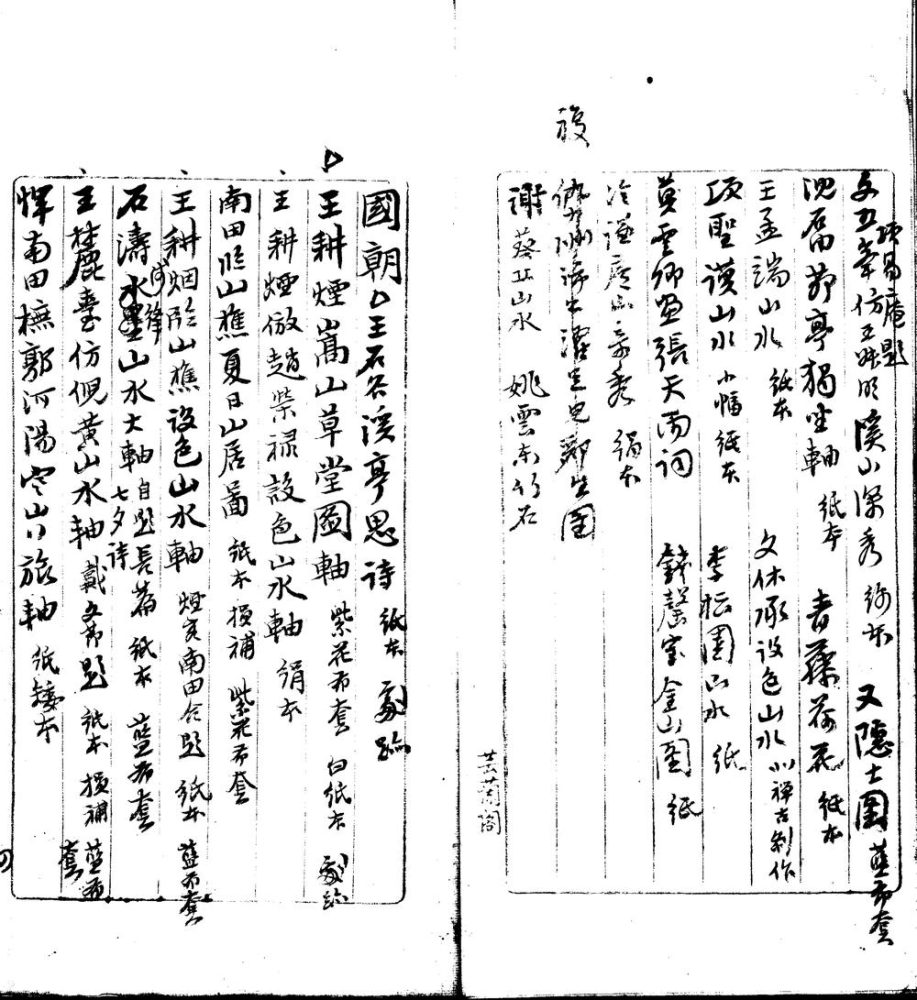 複
文五峯仿王叔明溪山深秀 紙本 又隱士圖 藍布套
項易庵題
沈石田葑亭獨坐軸 紙本 青藤荷花 紙本
王孟端山水 紙本 文休承設色山水 小禪吉制作
項聖謨山水 小幅 紙本 李松園山水 紙
莫雲卿畫張天雨詞 錢磬室金山圖 紙
冷謙 絹本
圖
謝葵丘山水 姚雲東竹石
國朝 王石谷溪亭思詩 紙本
王耕煙嵩山草堂圖軸 紫花布套 白紙本
王耕煙倣趙榮祿設色山水軸 絹本
南田臨山樵夏日山居啚 紙本 損補 紫花布套
王耕烟臨山樵設色山水軸 煙客南田合題 紙本 藍布套
石濤水墨山水大軸 自題長篇 七夕詩 紙本 藍布套
王麓臺仿倪黃山水軸 戴文節題 紙本 損補 藍布套
惲南田橅郭河陽寒山行旅軸 紙矮本